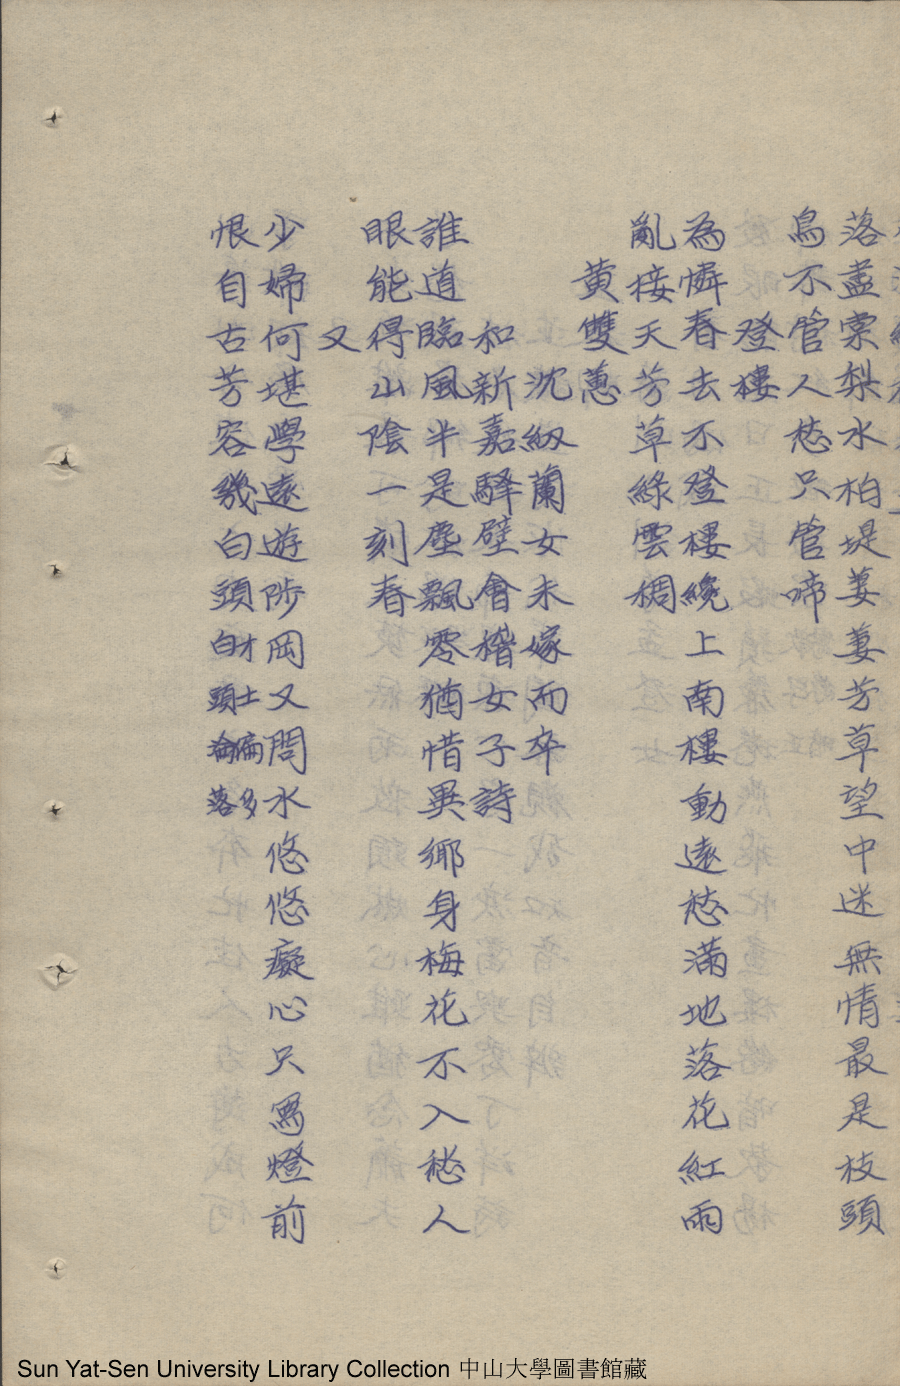 落盡棠梨水柏堤萋萋芳草望中迷無情最是枝頭
鳥不管人愁只管啼
登樓
為憐春去不登樓纔上南樓動遠愁滿地落花紅雨
亂接天芳草綠雲稠
黃雙蕙
沈紉蘭女未嫁而卒
和新嘉驛壁會稽女子詩
誰道臨風半是塵飄零猶惜異鄉身梅花不入愁人
眼能得山陰一刻春
又
少婦何堪學遠遊陟岡又問水悠悠癡心只寫燈前
恨自古芳容幾白頭才士偏多白頭淪落
Sun Yat-Sen University Library Collection 中山大學圖書館藏